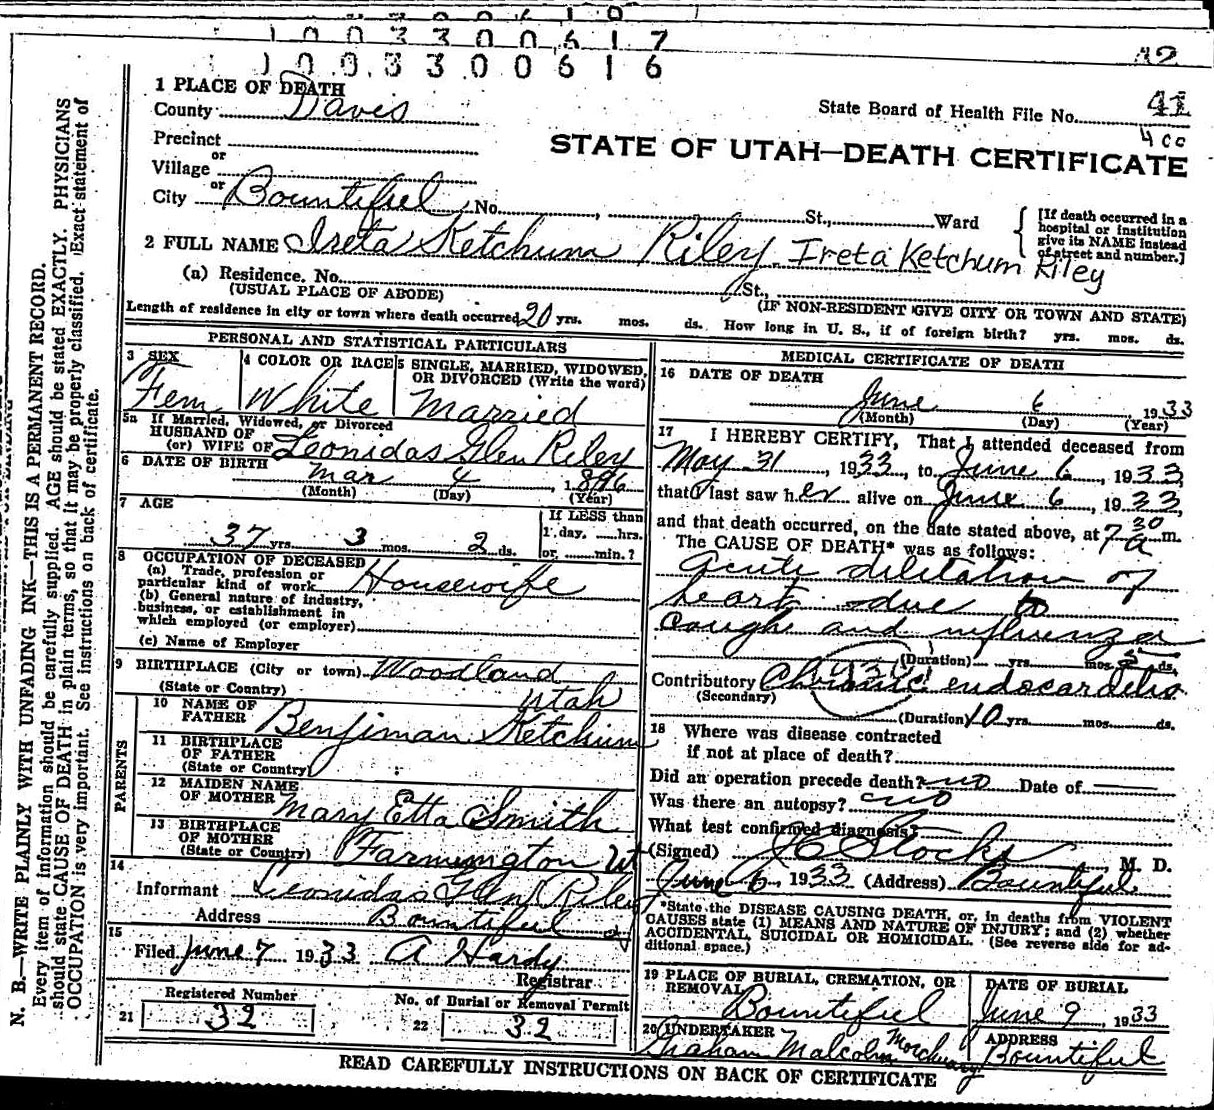 1 0 0 3 3 0 0 6 1 7
1 0 0 3 3 0 0 6 1 6
42
1 PLACE OF DEATH
County Davis
State Board of Health File No. 41
400
Precinct
or
Village
or
City Bountiful No. , St., Ward
STATE OF UTAH—DEATH CERTIFICATE
[If death occurred in a
hospital or institution
give its NAME instead
of street and number.]
2 FULL NAME Ireta Ketchum Riley Ireta Ketchum Riley
(a) Residence. No. St.,
(USUAL PLACE OF ABODE) (IF NON-RESIDENT GIVE CITY OR TOWN AND STATE)
Length of residence in city or town where death occurred 20 yrs. mos. ds. How long in U. S., if of foreign birth? yrs. mos. ds.
PERSONAL AND STATISTICAL PARTICULARS
3 SEX
Fem
4 COLOR OR RACE
White
5 SINGLE, MARRIED, WIDOWED,
OR DIVORCED (Write the word)
Married
5a If Married, Widowed, or Divorced
HUSBAND OF
(or) WIFE OF Leonidas Glen Riley
6 DATE OF BIRTH Mar 4, 1896
(Month) (Day) (Year)
7 AGE
37 yrs. 3 mos. 2 ds.
If LESS than
1 day, hrs.
or min.?
8 OCCUPATION OF DECEASED
(a) Trade, profession or
particular kind of work Housewife
(b) General nature of industry,
business, or establishment in
which employed (or employer)
(c) Name of Employer
9 BIRTHPLACE (City or town) Woodland
(State or Country) Utah
PARENTS
10 NAME OF
FATHER Benjiman Ketchum
11 BIRTHPLACE
OF FATHER
(State or Country)
12 MAIDEN NAME
OF MOTHER Mary Etta Smith
13 BIRTHPLACE
OF MOTHER
(State or Country) Farmington Ut
14
Informant Leonidas Glen Riley
Address Bountiful
15
Filed June 7 1933 A Hardy
Registrar
Registered Number
21 32
No. of Burial or Removal Permit
22 32
MEDICAL CERTIFICATE OF DEATH
16 DATE OF DEATH
June 6, 1933
(Month) (Day) (Year)
17 I HEREBY CERTIFY, That I attended deceased from
May 31, 1933, to June 6, 1933,
that I last saw her alive on June 6, 1933,
and that death occurred, on the date stated above, at 7 30 a m.
The CAUSE OF DEATH* was as follows:
acute diletation of
heart due to
cough and influenza
(Duration) yrs. mos. 5 ds.
Contributory Chronic endocarditis
(Secondary)
(Duration) 10 yrs. mos. ds.
18 Where was disease contracted
if not at place of death?
Did an operation precede death? no Date of
Was there an autopsy? no
What test confirmed diagnosis?
(Signed) J C Stocks, M. D.
June 6, 1933 (Address) Bountiful.
*State the DISEASE CAUSING DEATH, or, in deaths from VIOLENT
CAUSES state (1) MEANS AND NATURE OF INJURY; and (2) whether
ACCIDENTAL, SUICIDAL OR HOMICIDAL. (See reverse side for ad-
ditional space.)
19 PLACE OF BURIAL, CREMATION, OR
REMOVAL Bountiful
DATE OF BURIAL
June 9, 1933
20 UNDERTAKER
Graham Malcolm Morchuary
ADDRESS
Bountiful
READ CAREFULLY INSTRUCTIONS ON BACK OF CERTIFICATE
N. B.—WRITE PLAINLY WITH UNFADING INK—THIS IS A PERMANENT RECORD.
Every item of information should be carefully supplied. AGE should be stated EXACTLY. PHYSICIANS
should state CAUSE OF DEATH in plain terms, so that it may be properly classified. Exact statement of
OCCUPATION is very important. See instructions on back of certificate.